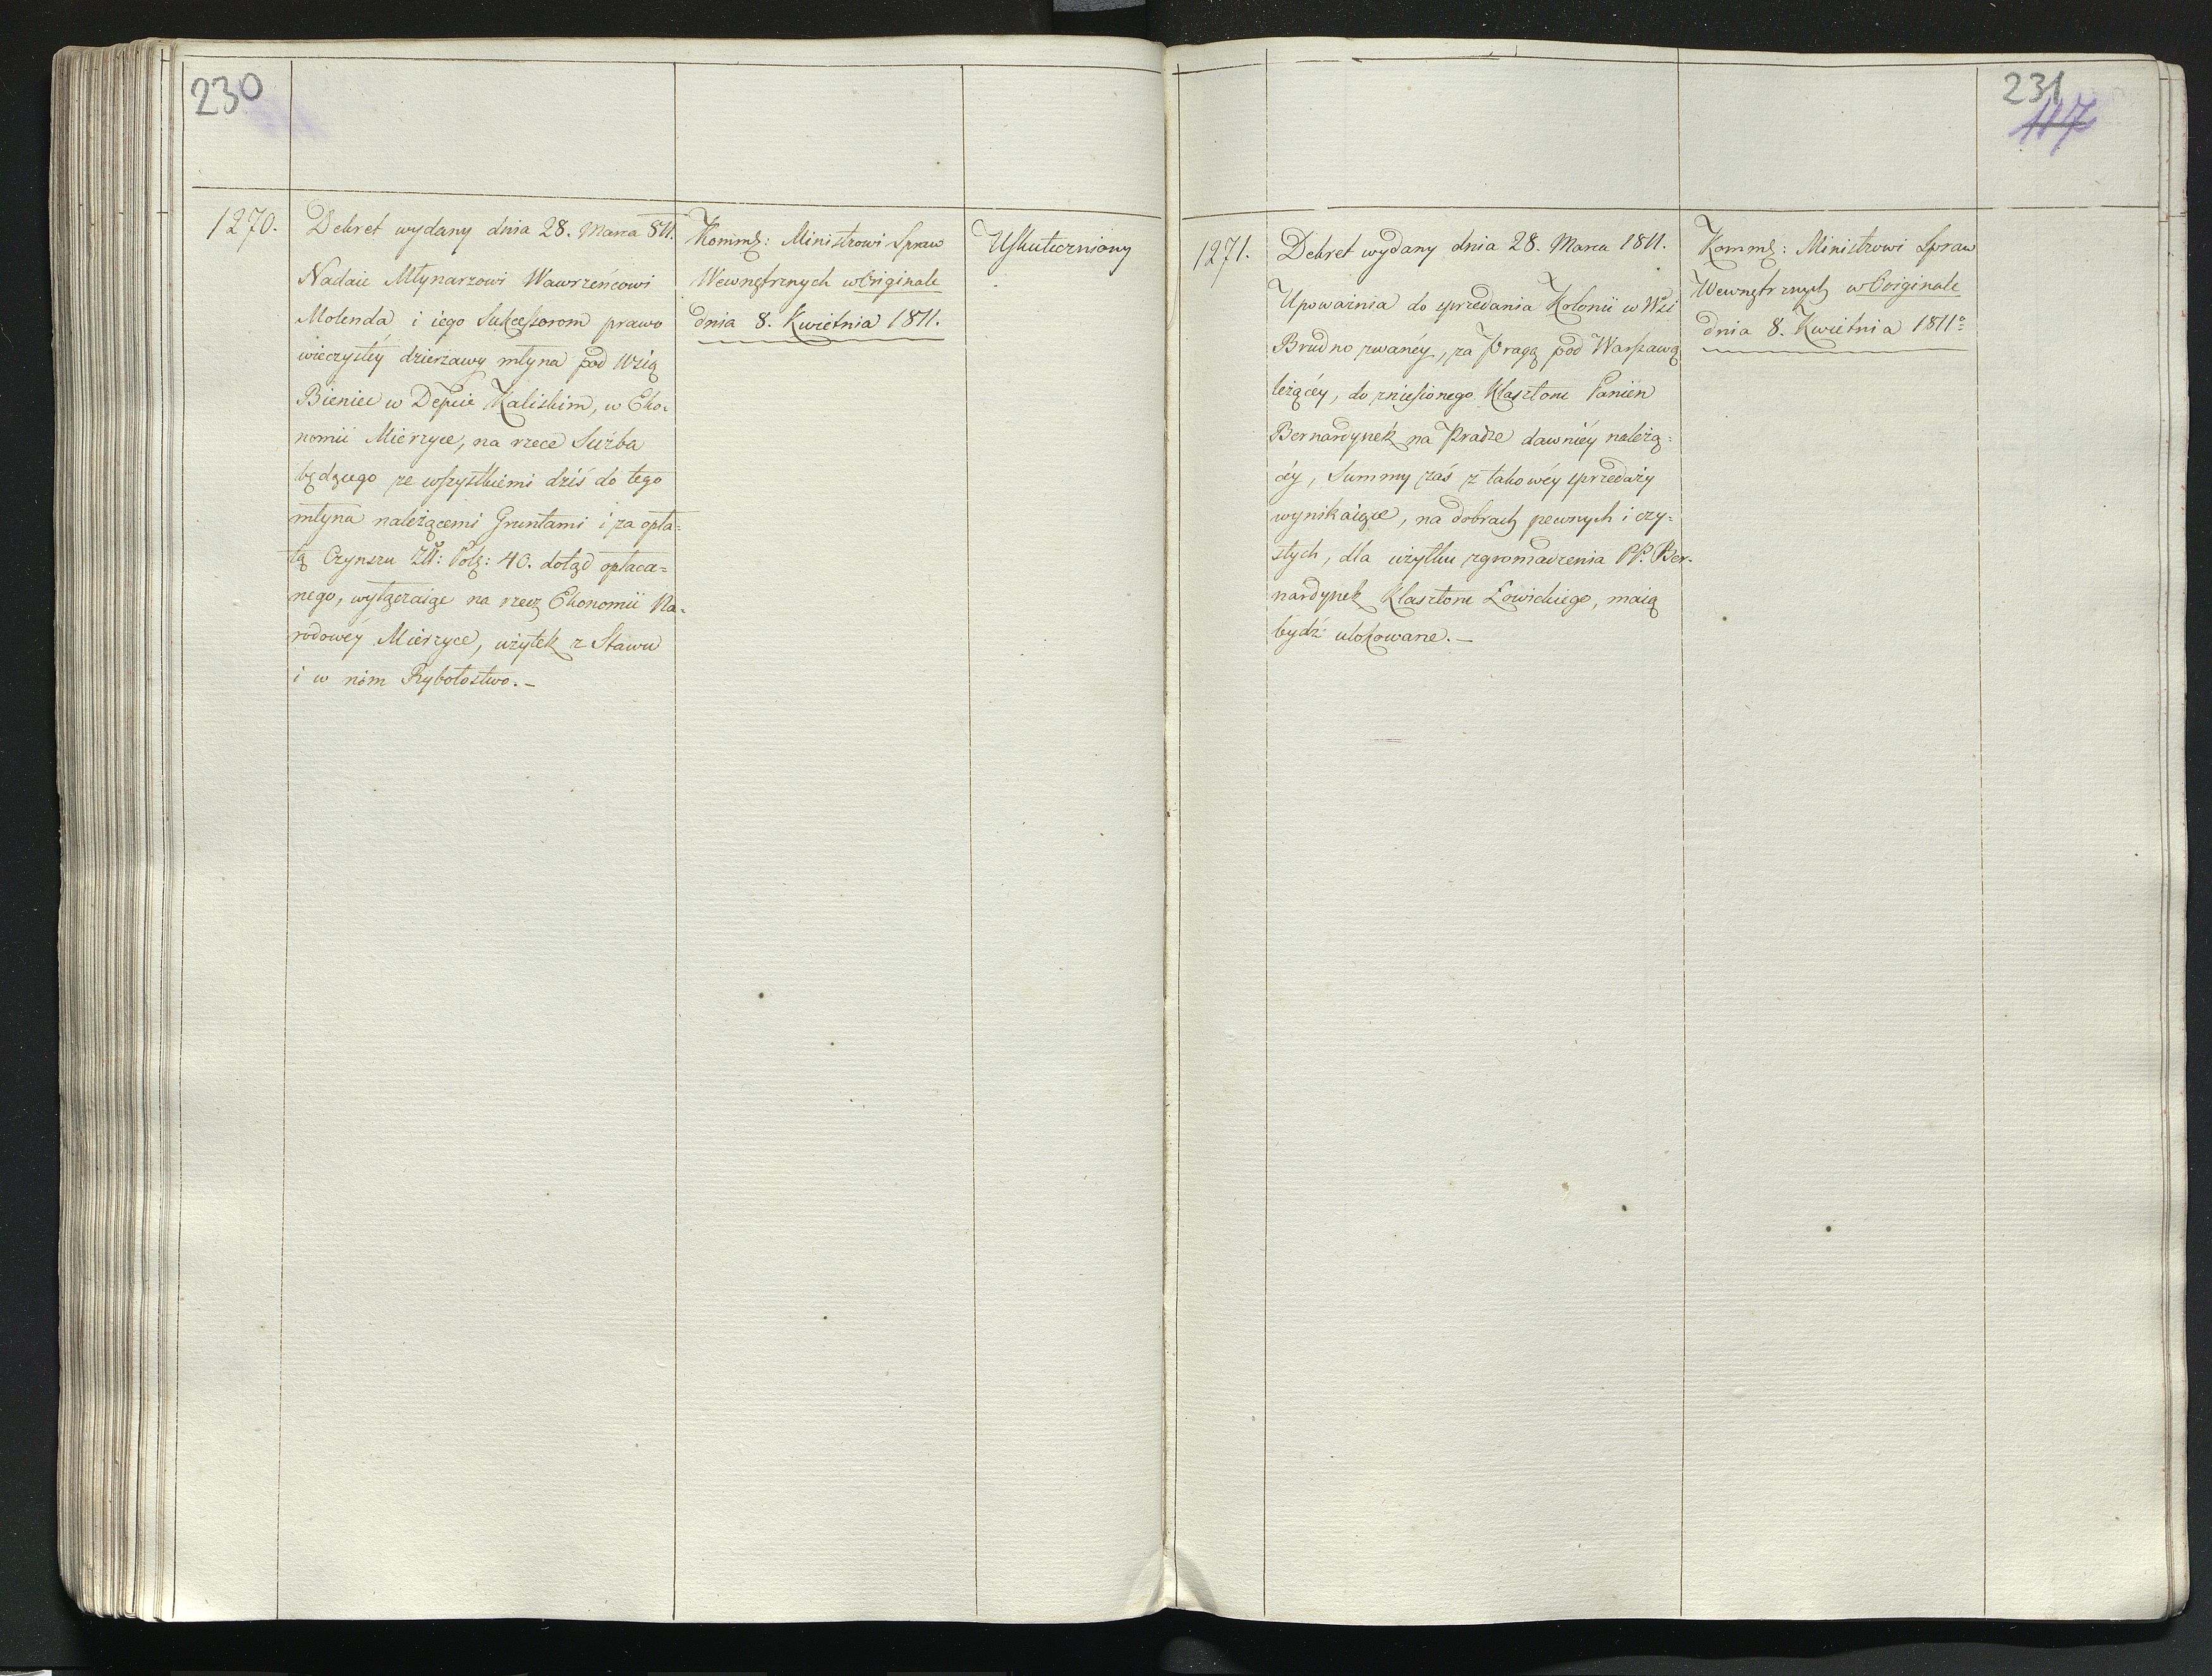 230
1270.
Dekret wydany dnia 28. Marca 811.
Nadaie Młynarzowi Wawrzeńcowi
Molenda i iego Sukcessorom prawo
wieczystéy dzierżawy młyna pod Wsią
Bieniec w Depcie Kaliskim, w Eko=
nomii Mierzyce, na rzece
będącego ze wszystkiemi dziś do tego
młyna należącemi Gruntami i za opła=
tą Czynszu Złł: Pols: 40. dotąd opłaca=
nego, wyłączaiąc na rzecz Ekonomii Na=
rodowéy Mierzyce, użytek z Stawu
i w nim Rybołostwo.—
Kommk: Ministrowi Spraw
Wewnętrznych w Originale
dnia 8. Kwietnia 1811.
Uskuteczniony
231
117
1271.
Dekret wydany dnia 28. Marca 1811.
Upoważnia do sprzedania Kolonii w Wsi
Brudno zwanéy, za Pragą pod Warszawą
leżącéy, do zniesionego Klasztoru Panién
Bernardynek na Pradze dawniéy należą=
céy, Summy zaś z takowéy sprzedaży
wynikaiące, na dobrach pewnych i czy=
stych, dla użytku zgromadzenia PP. Ber=
nardynek Klasztoru Łowickiego, maią
bydź ulokowane.—
Kommk: Ministrowi Spraw
Wewnętrznych w Originale
dnia 8. Kwietnia 1811